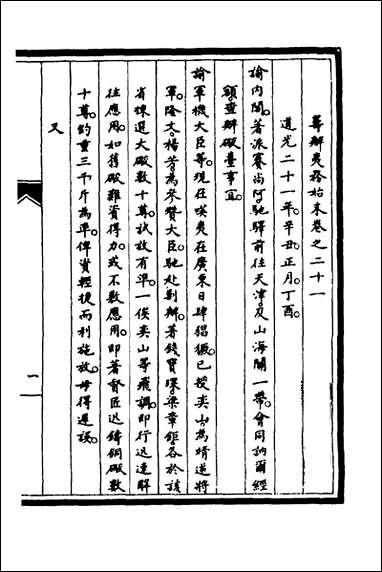 籌辦夷務始末卷之二十一
道光二十一年。辛丑。正月。丁酉。
諭內閣。著派賽尚阿。馳驛前往天津。及山海關一帶。會同訥爾經
額。查辦礮臺事宜。
諭軍機大臣等。現在㗸夷在廣東日肆猖獗。已授奕山。為靖逆將
軍。隆文。楊芳。為參贊大臣。馳赴剿辦。著錢寶琛。梁章鉅。各於該
省揀選大礮數十尊。試放有準。一俟奕山等飛調。即行迅速解
往應用。如舊礮難資得力。或不敷應用。即著督匠迅鑄銅礮數
十尊。約重三千斤為率。俾資輕捷而利施放。毋得遲誤。
又
一